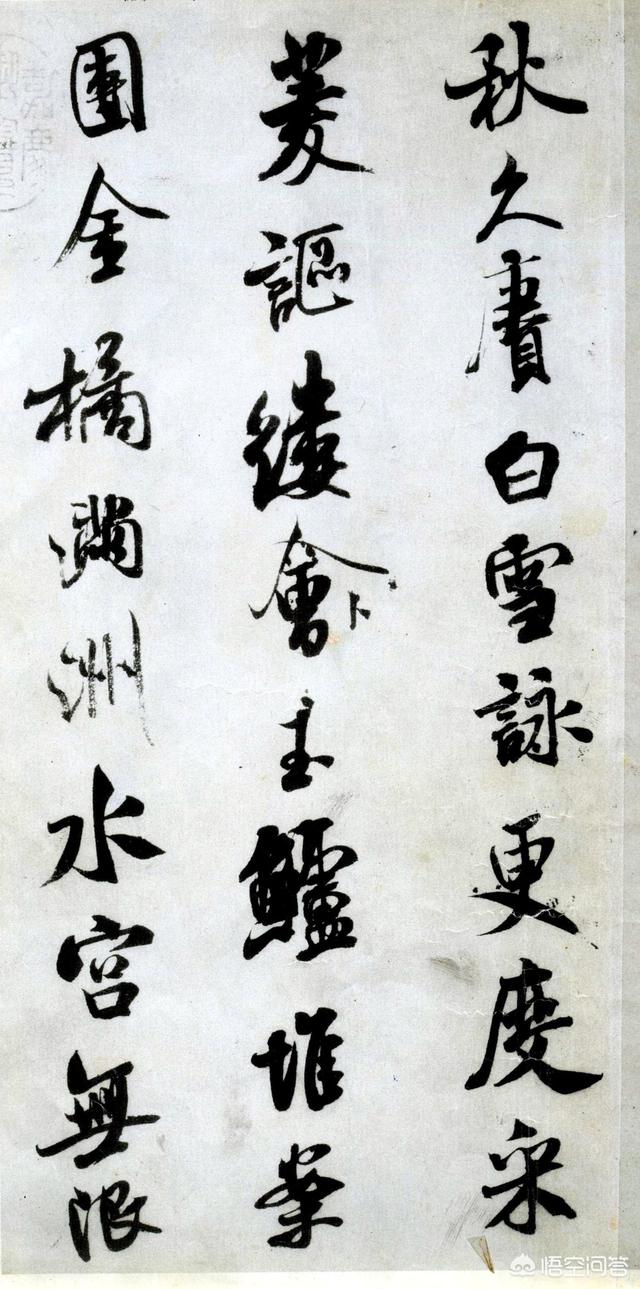 秋久賡白雪詠更度采
菱謳縷會玉鱸堆案
團金橘滿洲水宮無限
悟空问答